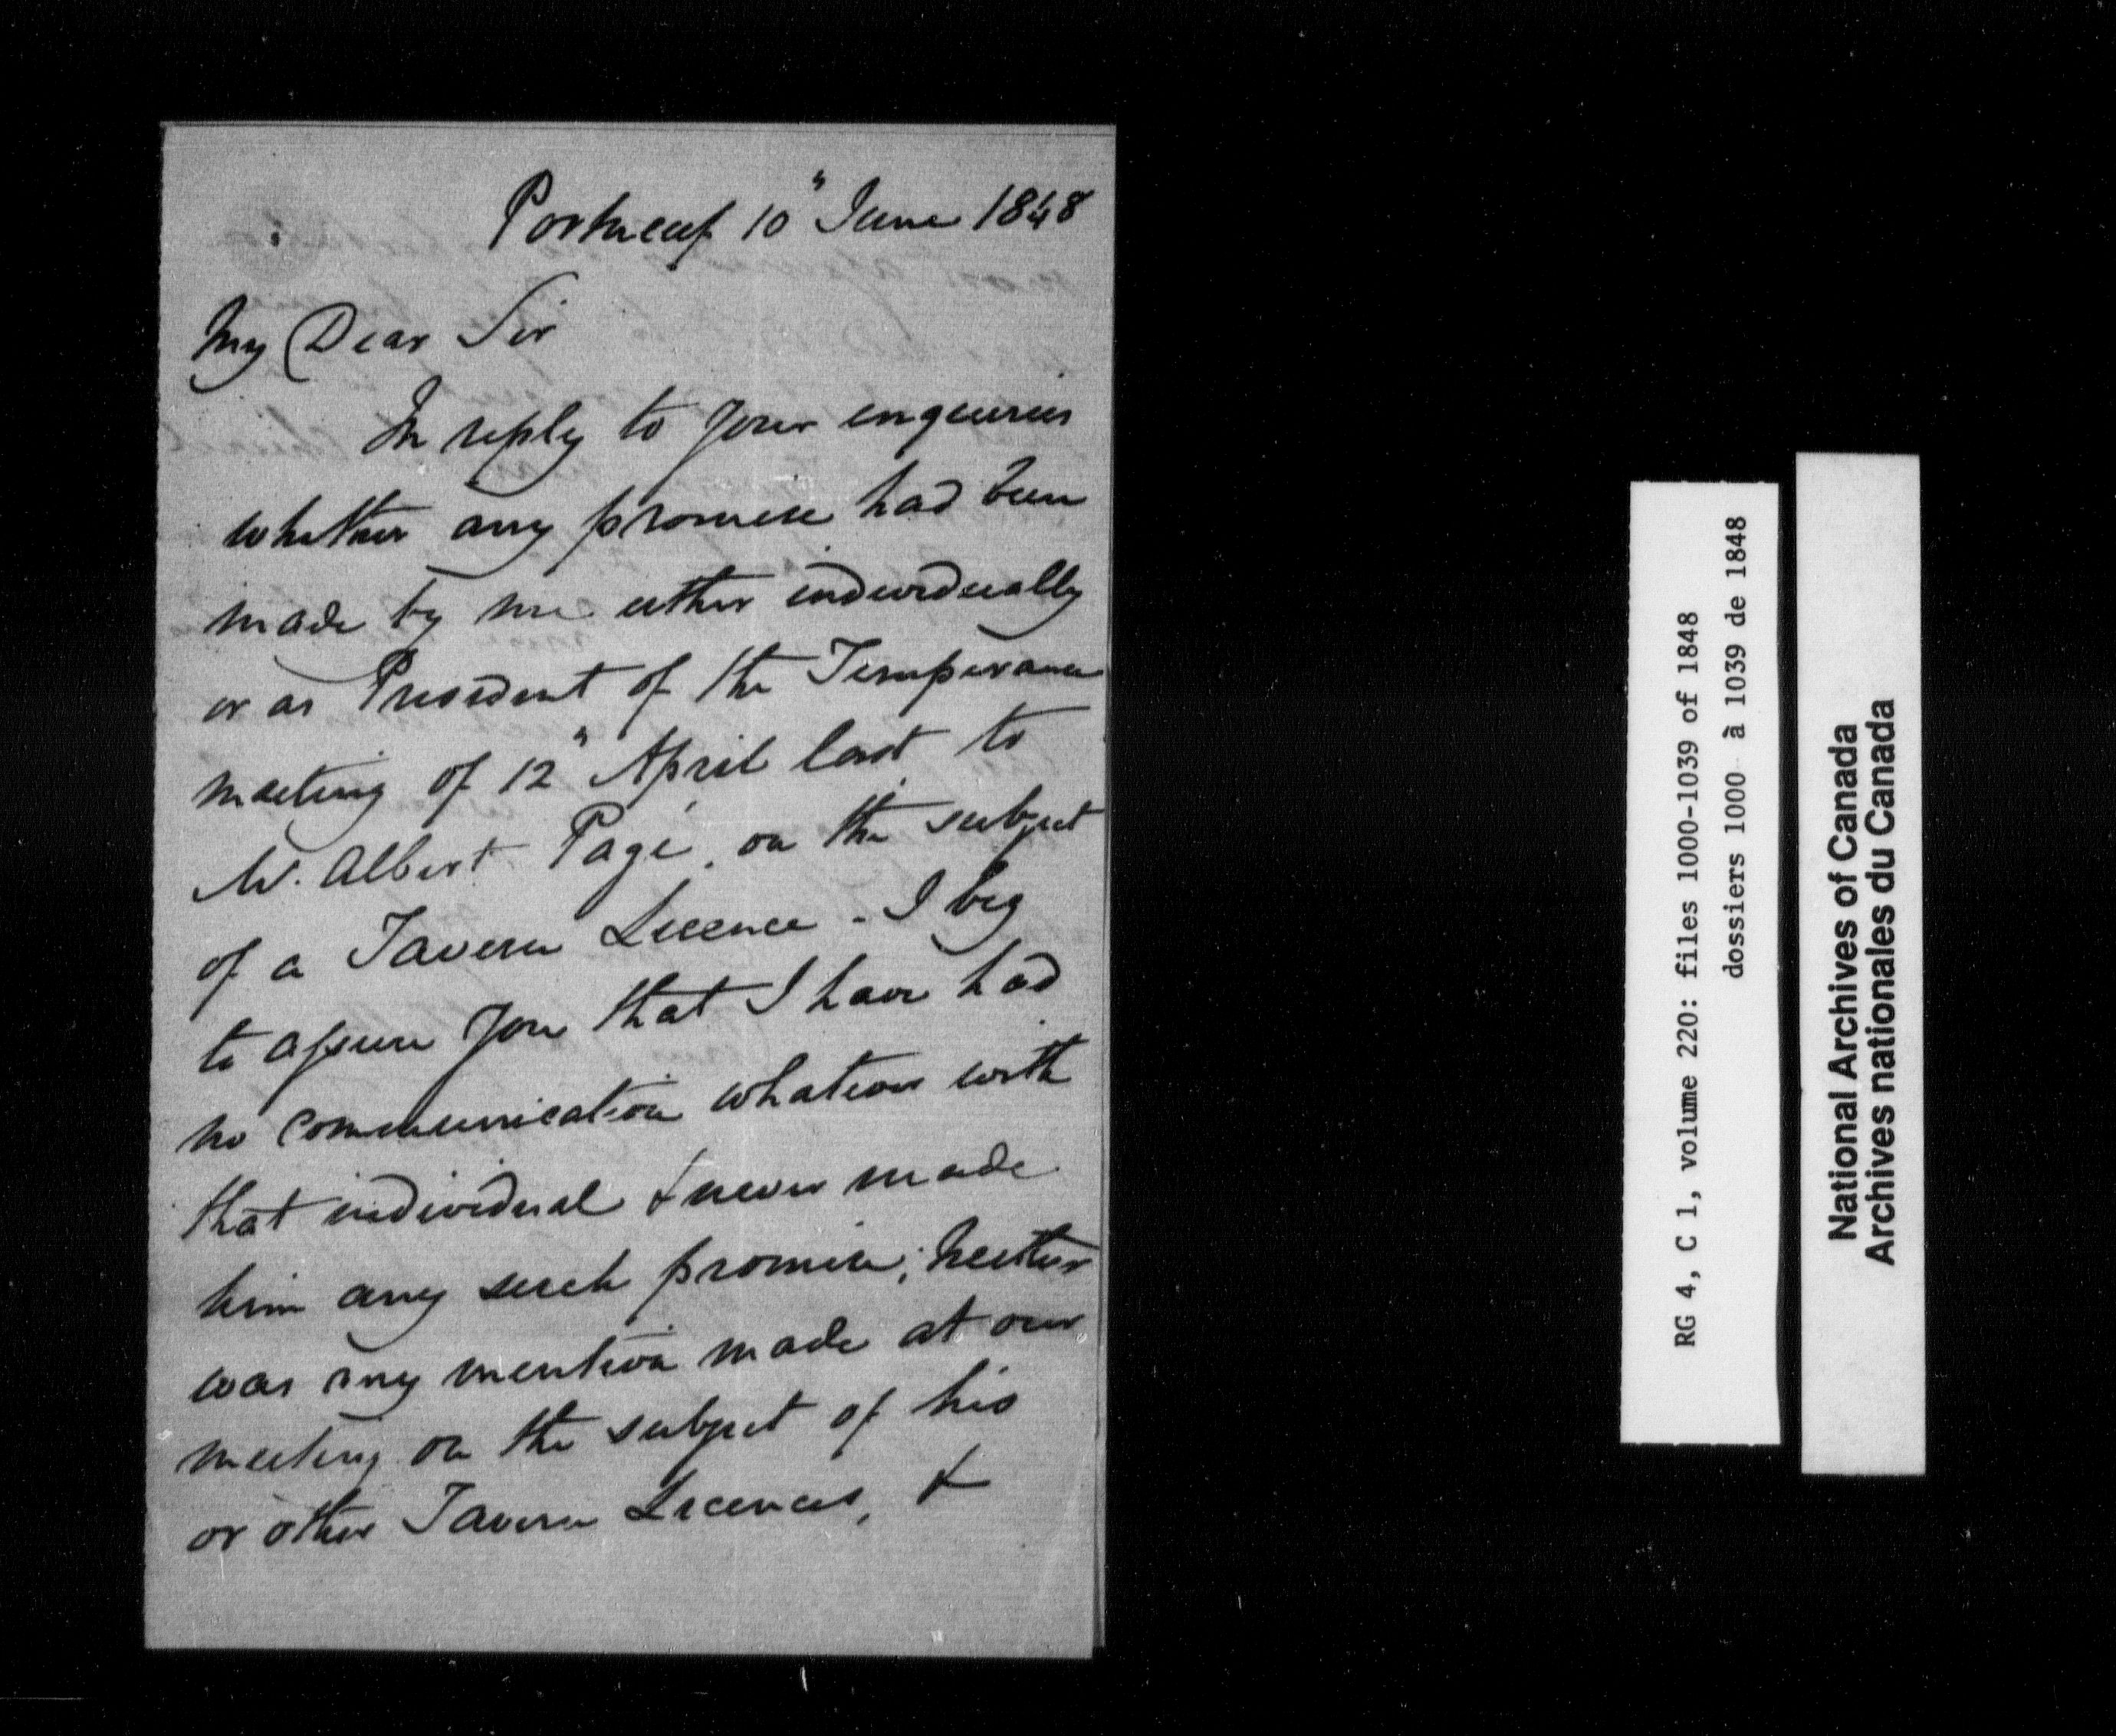 Portneuf 10" June 1848
My Dear Sir
In reply to your enquiries
whether any promise had been
made by me either individually
or as President of the Temperance
meeting of 12" April last to
Mr. Albert Pagé, on the subject
of a Tavern Licence - I beg
to assure you that I have had
no communication whatever with
that individual & never made
him any such promise; neither
was any mention made at our
meeting on the subject of his
or other Tavern Licences, &
RG 4, C 1, volume 220: files 1000-1039 of 1848
dossiers 1000 à 1039 de 1848
National Archives of Canada
Archives nationales du Canada